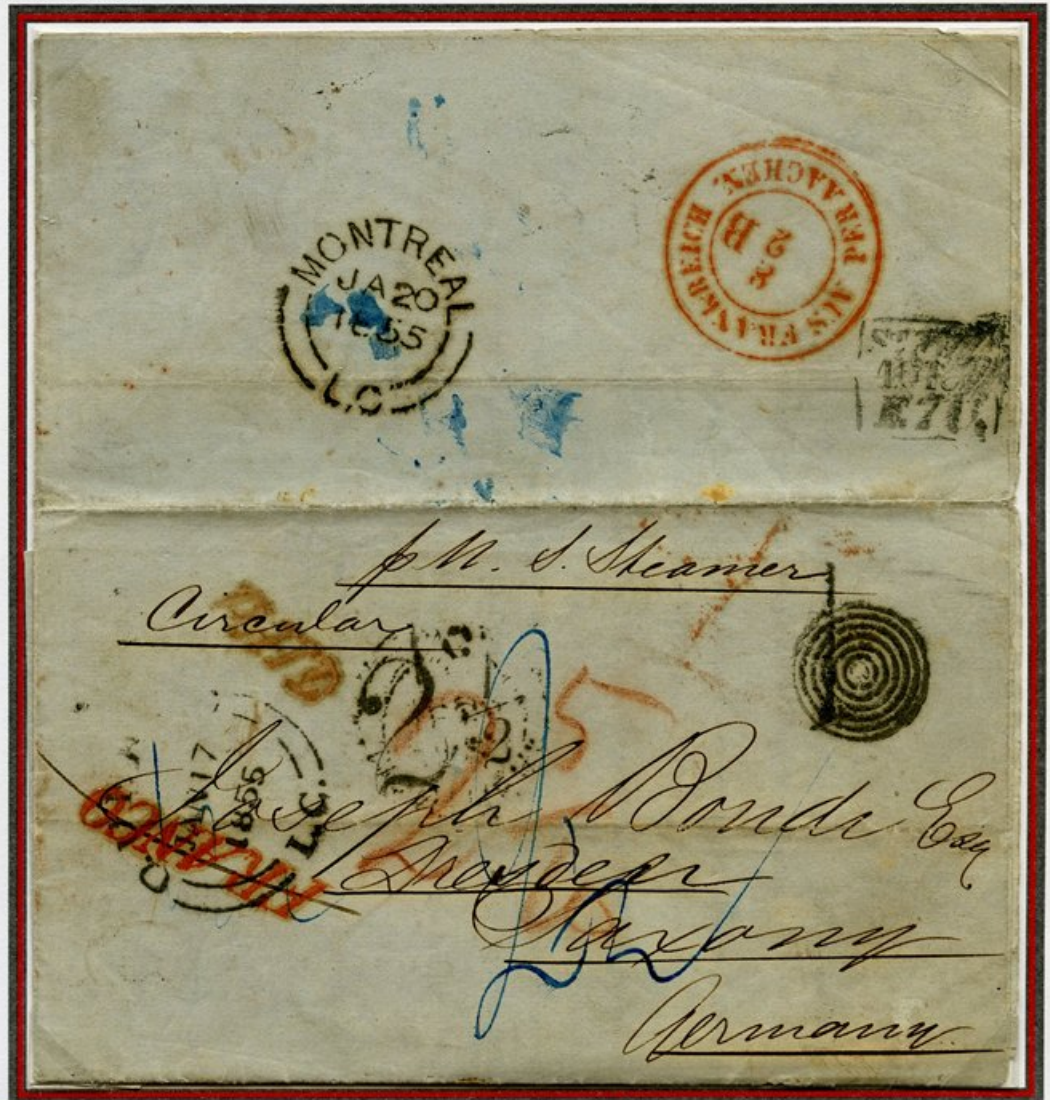 MONTREAL
JA 20
1855
L.C
AUS FRANKREICH
PER AACHEN.
2 B
E 7
p U. S. Steamer
Circular
PAID
2
25
2
17
1855
L.C.
FRANCO
Joseph Bondi Esq
Dresden
Saxony
Germany